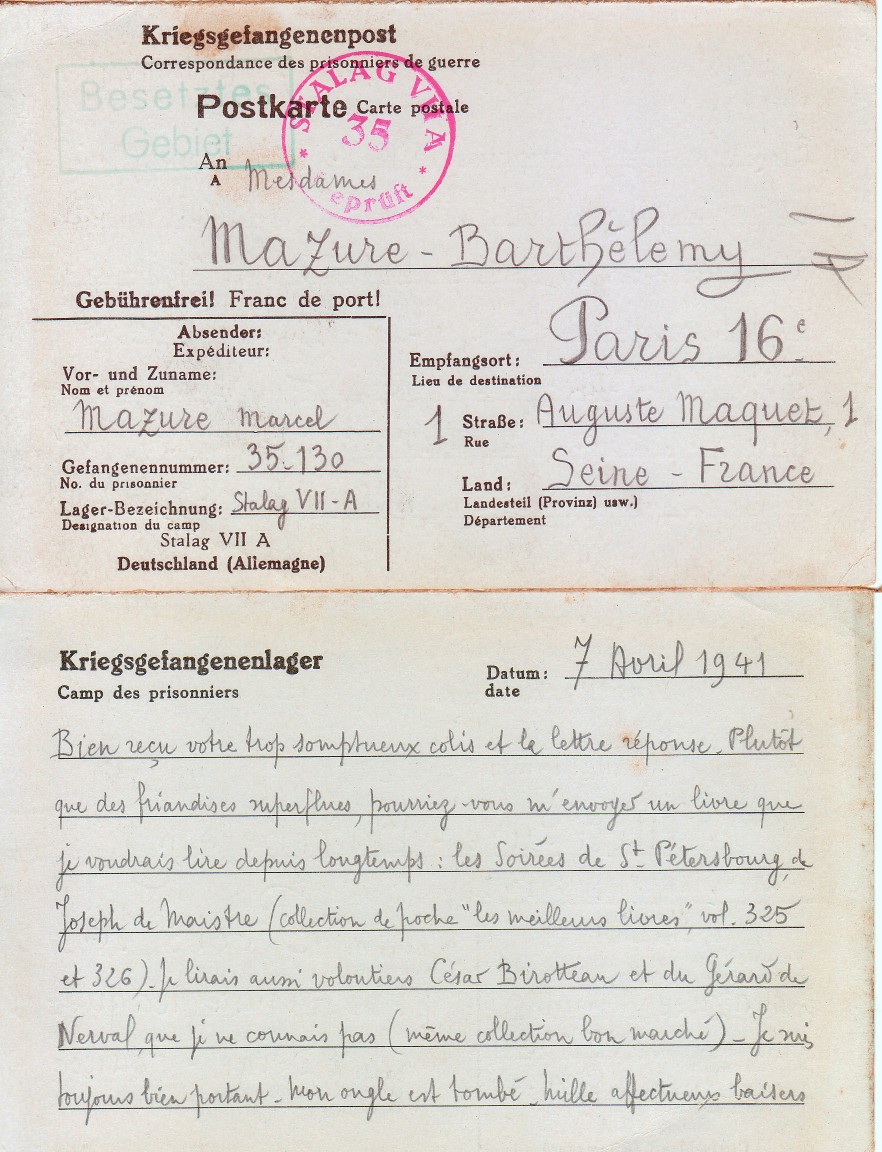 Kriegsgefangenenpost
Correspondance des prisonniers de guerre
Besetztes
Gebiet
Postkarte Carte postale
STALAG VII A
35
geprüft
An
A
Mesdames
Mazure - Barthélemy
Gebührenfrei! Franc de port!
Absender:
Expéditeur:
Vor- und Zuname:
Nom et prénom
Mazure Marcel
Gefangenennummer: 35.130
No. du prisonnier
Lager-Bezeichnung: Stalag VII-A
Designation du camp
Stalag VII A
Deutschland (Allemagne)
Empfangsort: Paris 16e
Lieu de destination
1 Straße: Auguste Maquet, 1
Rue
Land: Seine - France
Landesteil (Provinz) usw.)
Département
Kriegsgefangenenlager
Camp des prisonniers
Datum: 7 Avril 1941
date
Bien reçu votre trop somptueux colis et la lettre réponse. Plutôt
que des friandises superflues, pourriez-vous m'envoyer un livre que
je voudrais lire depuis longtemps : les Soirées de St Pétersbourg, de
Joseph de Maistre (collection de poche "les meilleurs livres", vol. 325
et 326). Je lirais aussi volontiers César Birotteau et du Gérard de
Nerval, que je ne connais pas (même collection bon marché) - Je suis
toujours bien portant - Mon ongle est tombé - Mille affectueux baisers